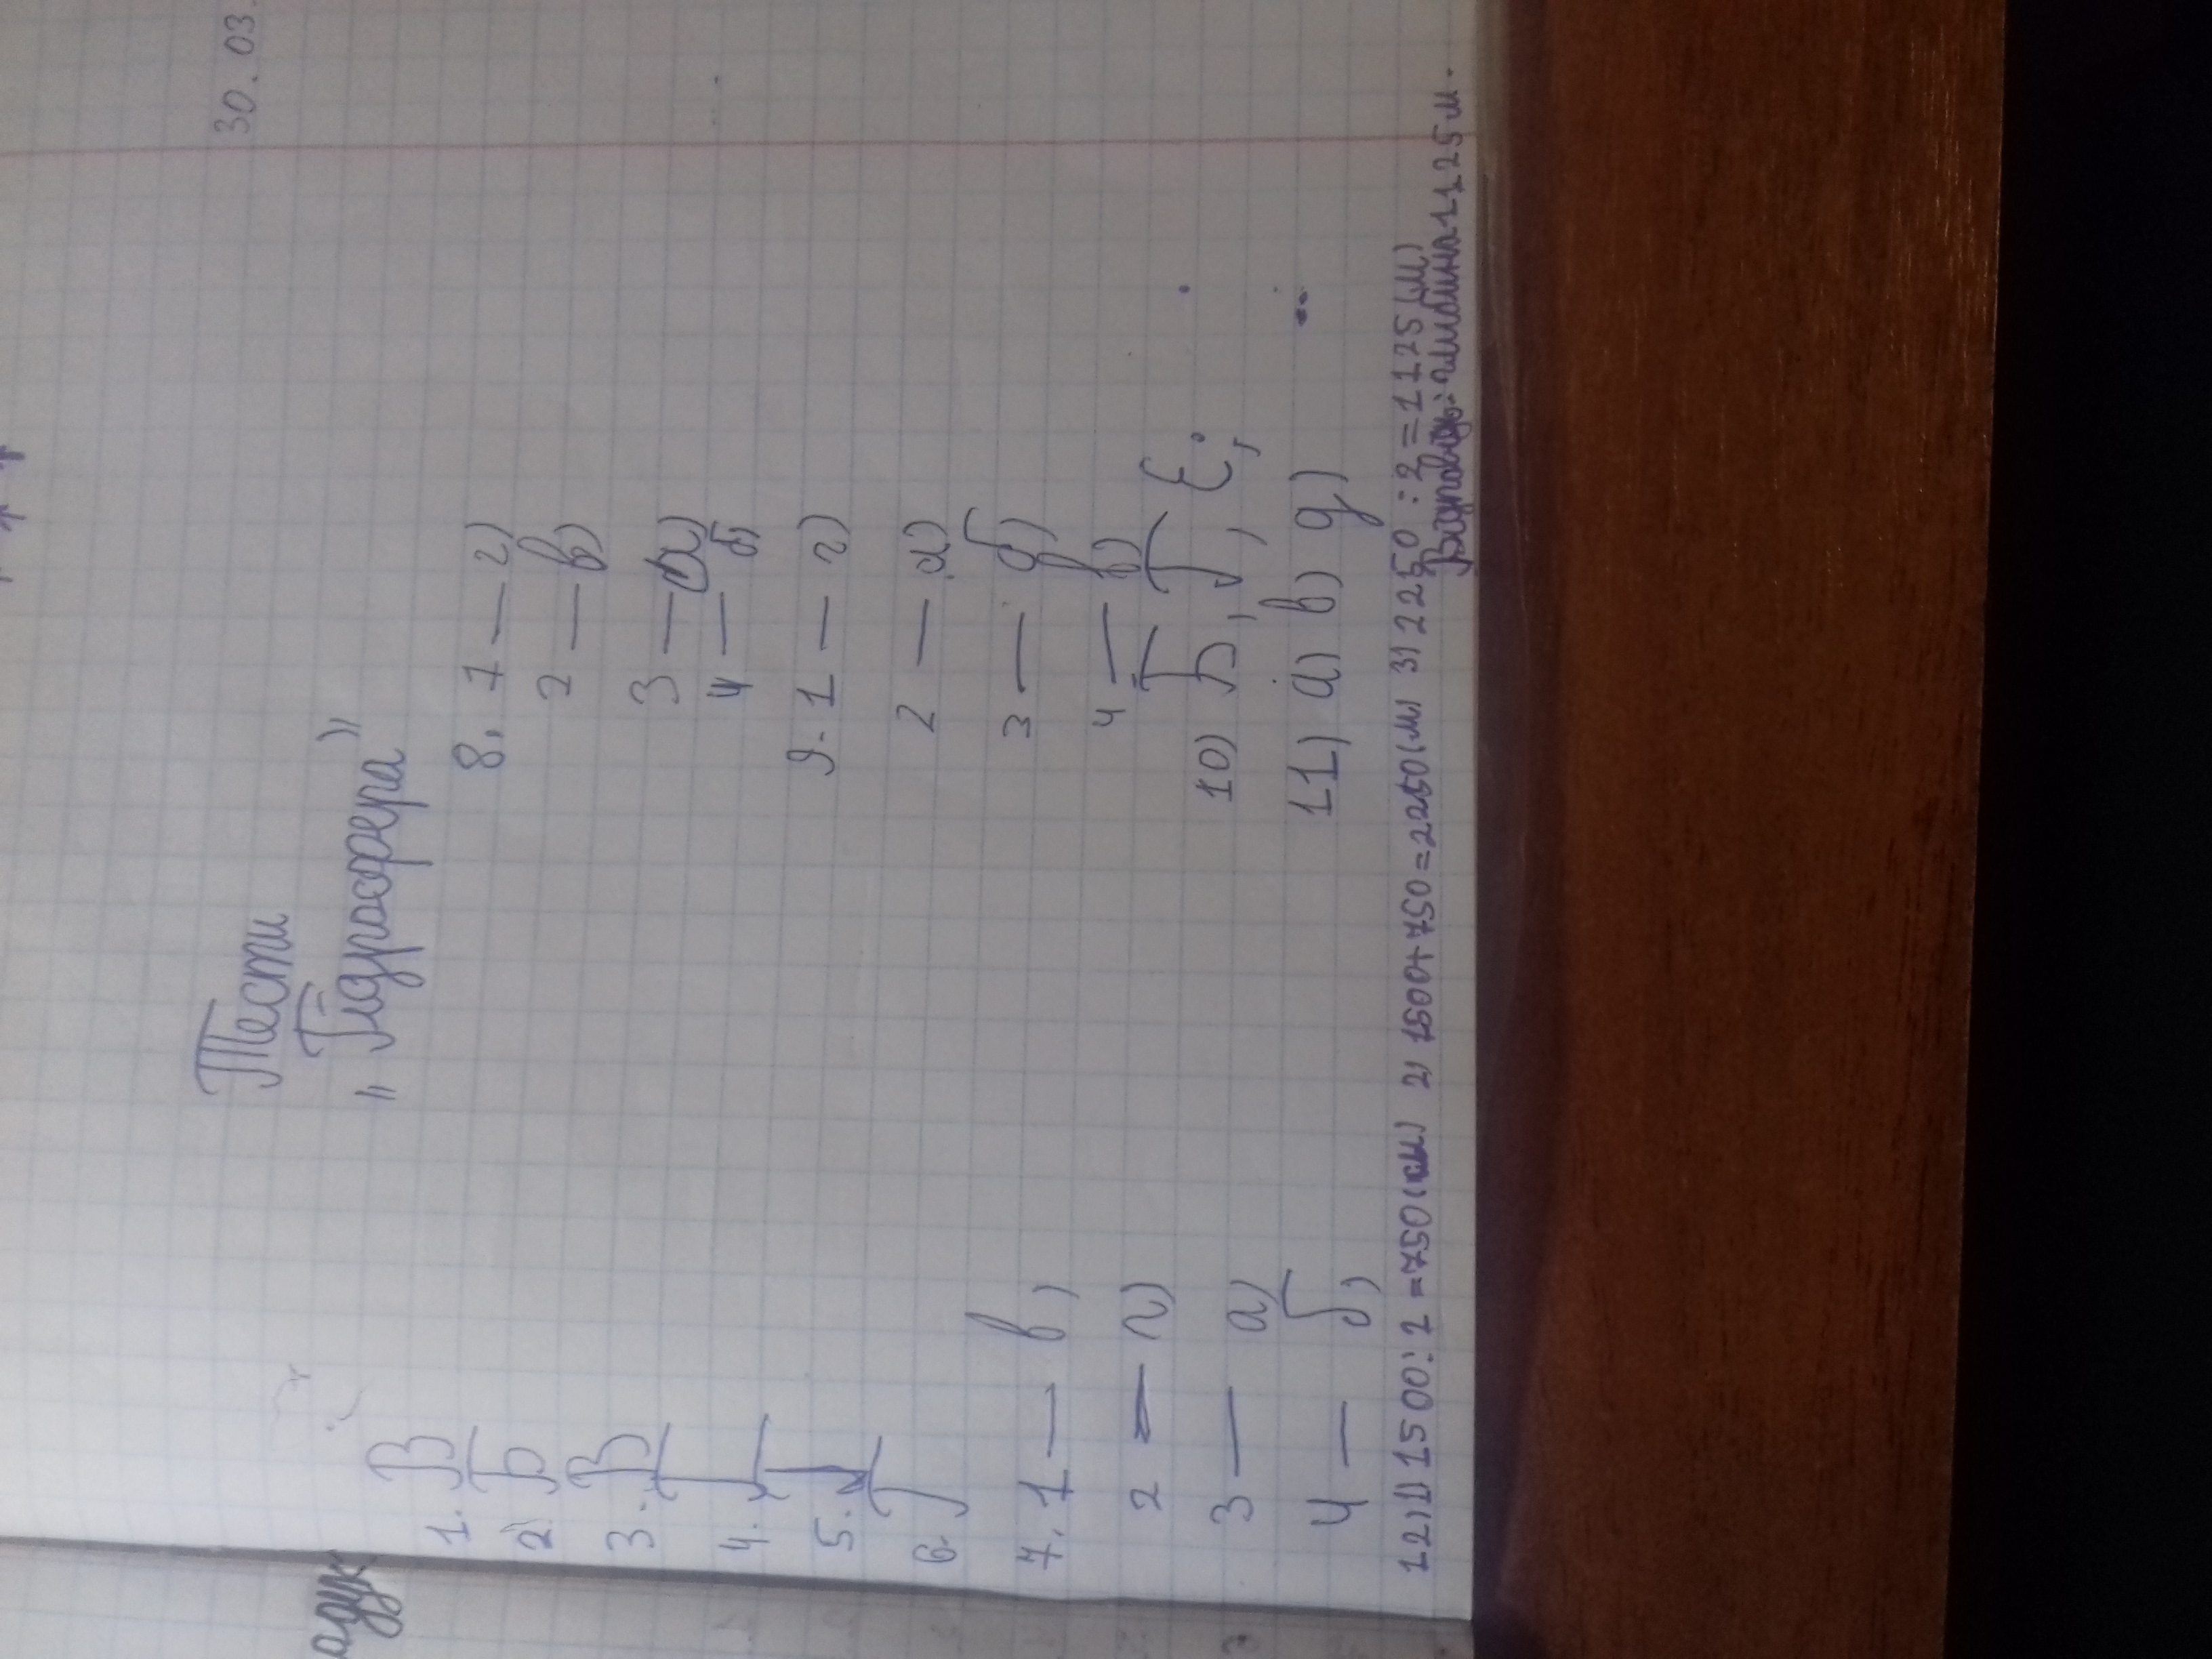 30.03.
Тести
„Гідросфера"
1. В
2. Б
3. В
4. Г
5. Г
6. Г
7. 1 — в)
2 — г)
3 — а)
4 — б)
8. 1 — г)
2 — в)
3 — а)
4 — б)
9. 1 — г)
2 — а)
3 — б)
4 — в)
10) Б, Г, Є;
11) а) в) д)
12) 1) 1500:2=750(м) 2) 1500+750=2250(м) 3) 2250:2=1125(м)
Відповідь: глибина 1125 м.